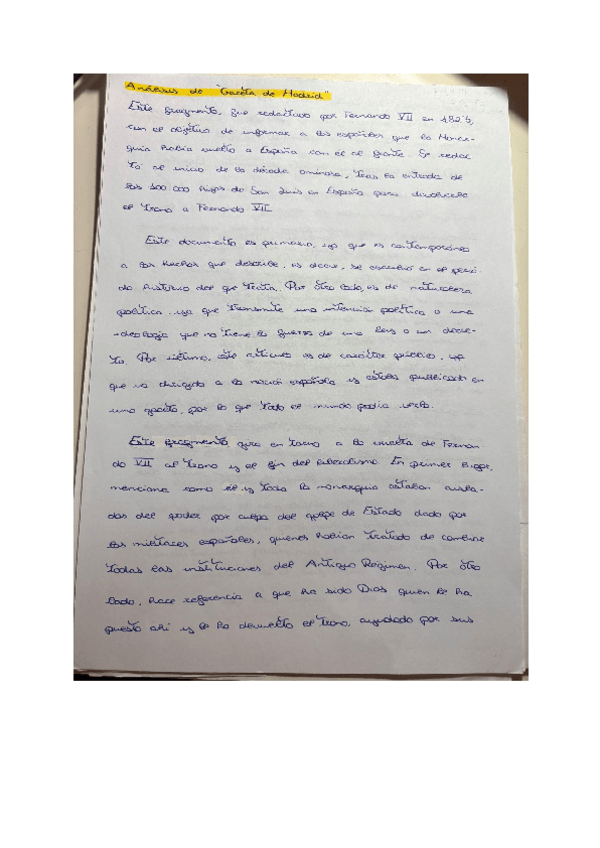 Análisis de "Gaceta de Madrid"
Este fragmento, fue redactado por Fernando VII en 1823,
con el objetivo de informar a los españoles que la Monar-
quía había vuelto a España con él al frente. Se redac
tó al inicio de la década ominosa, tras la entrada de
los 100 000 hijos de San Luis en España para devolverle
el trono a Fernando VII.
Este documento es primario, ya que es contemporáneo
a los hechos que describe, es decir, se escribió en el perí-
do histórico del que trata. Por otro lado, es de naturaleza
política, ya que transmite una intención política o una
ideología que no tiene la fuerza de una ley o un decre-
to. Por último, este artículo es de carácter público, ya
que va dirigido a la nación española y estaba publicado en
una gaceta, por lo que todo el mundo podía verlo.
Este fragmento gira en torno a la vuelta de Fernan
do VII al trono y el fin del liberalismo. En primer lugar,
menciona como él y toda la monarquía estaban
del poder por culpa del golpe de Estado dado por
los militares españoles, quienes habían tratado de cambiar
todas las instituciones del Antiguo Régimen. Por otro
lado, hace referencia a que ha sido Dios quien le ha
puesto ahí y le ha devuelto el trono, ayudado por sus